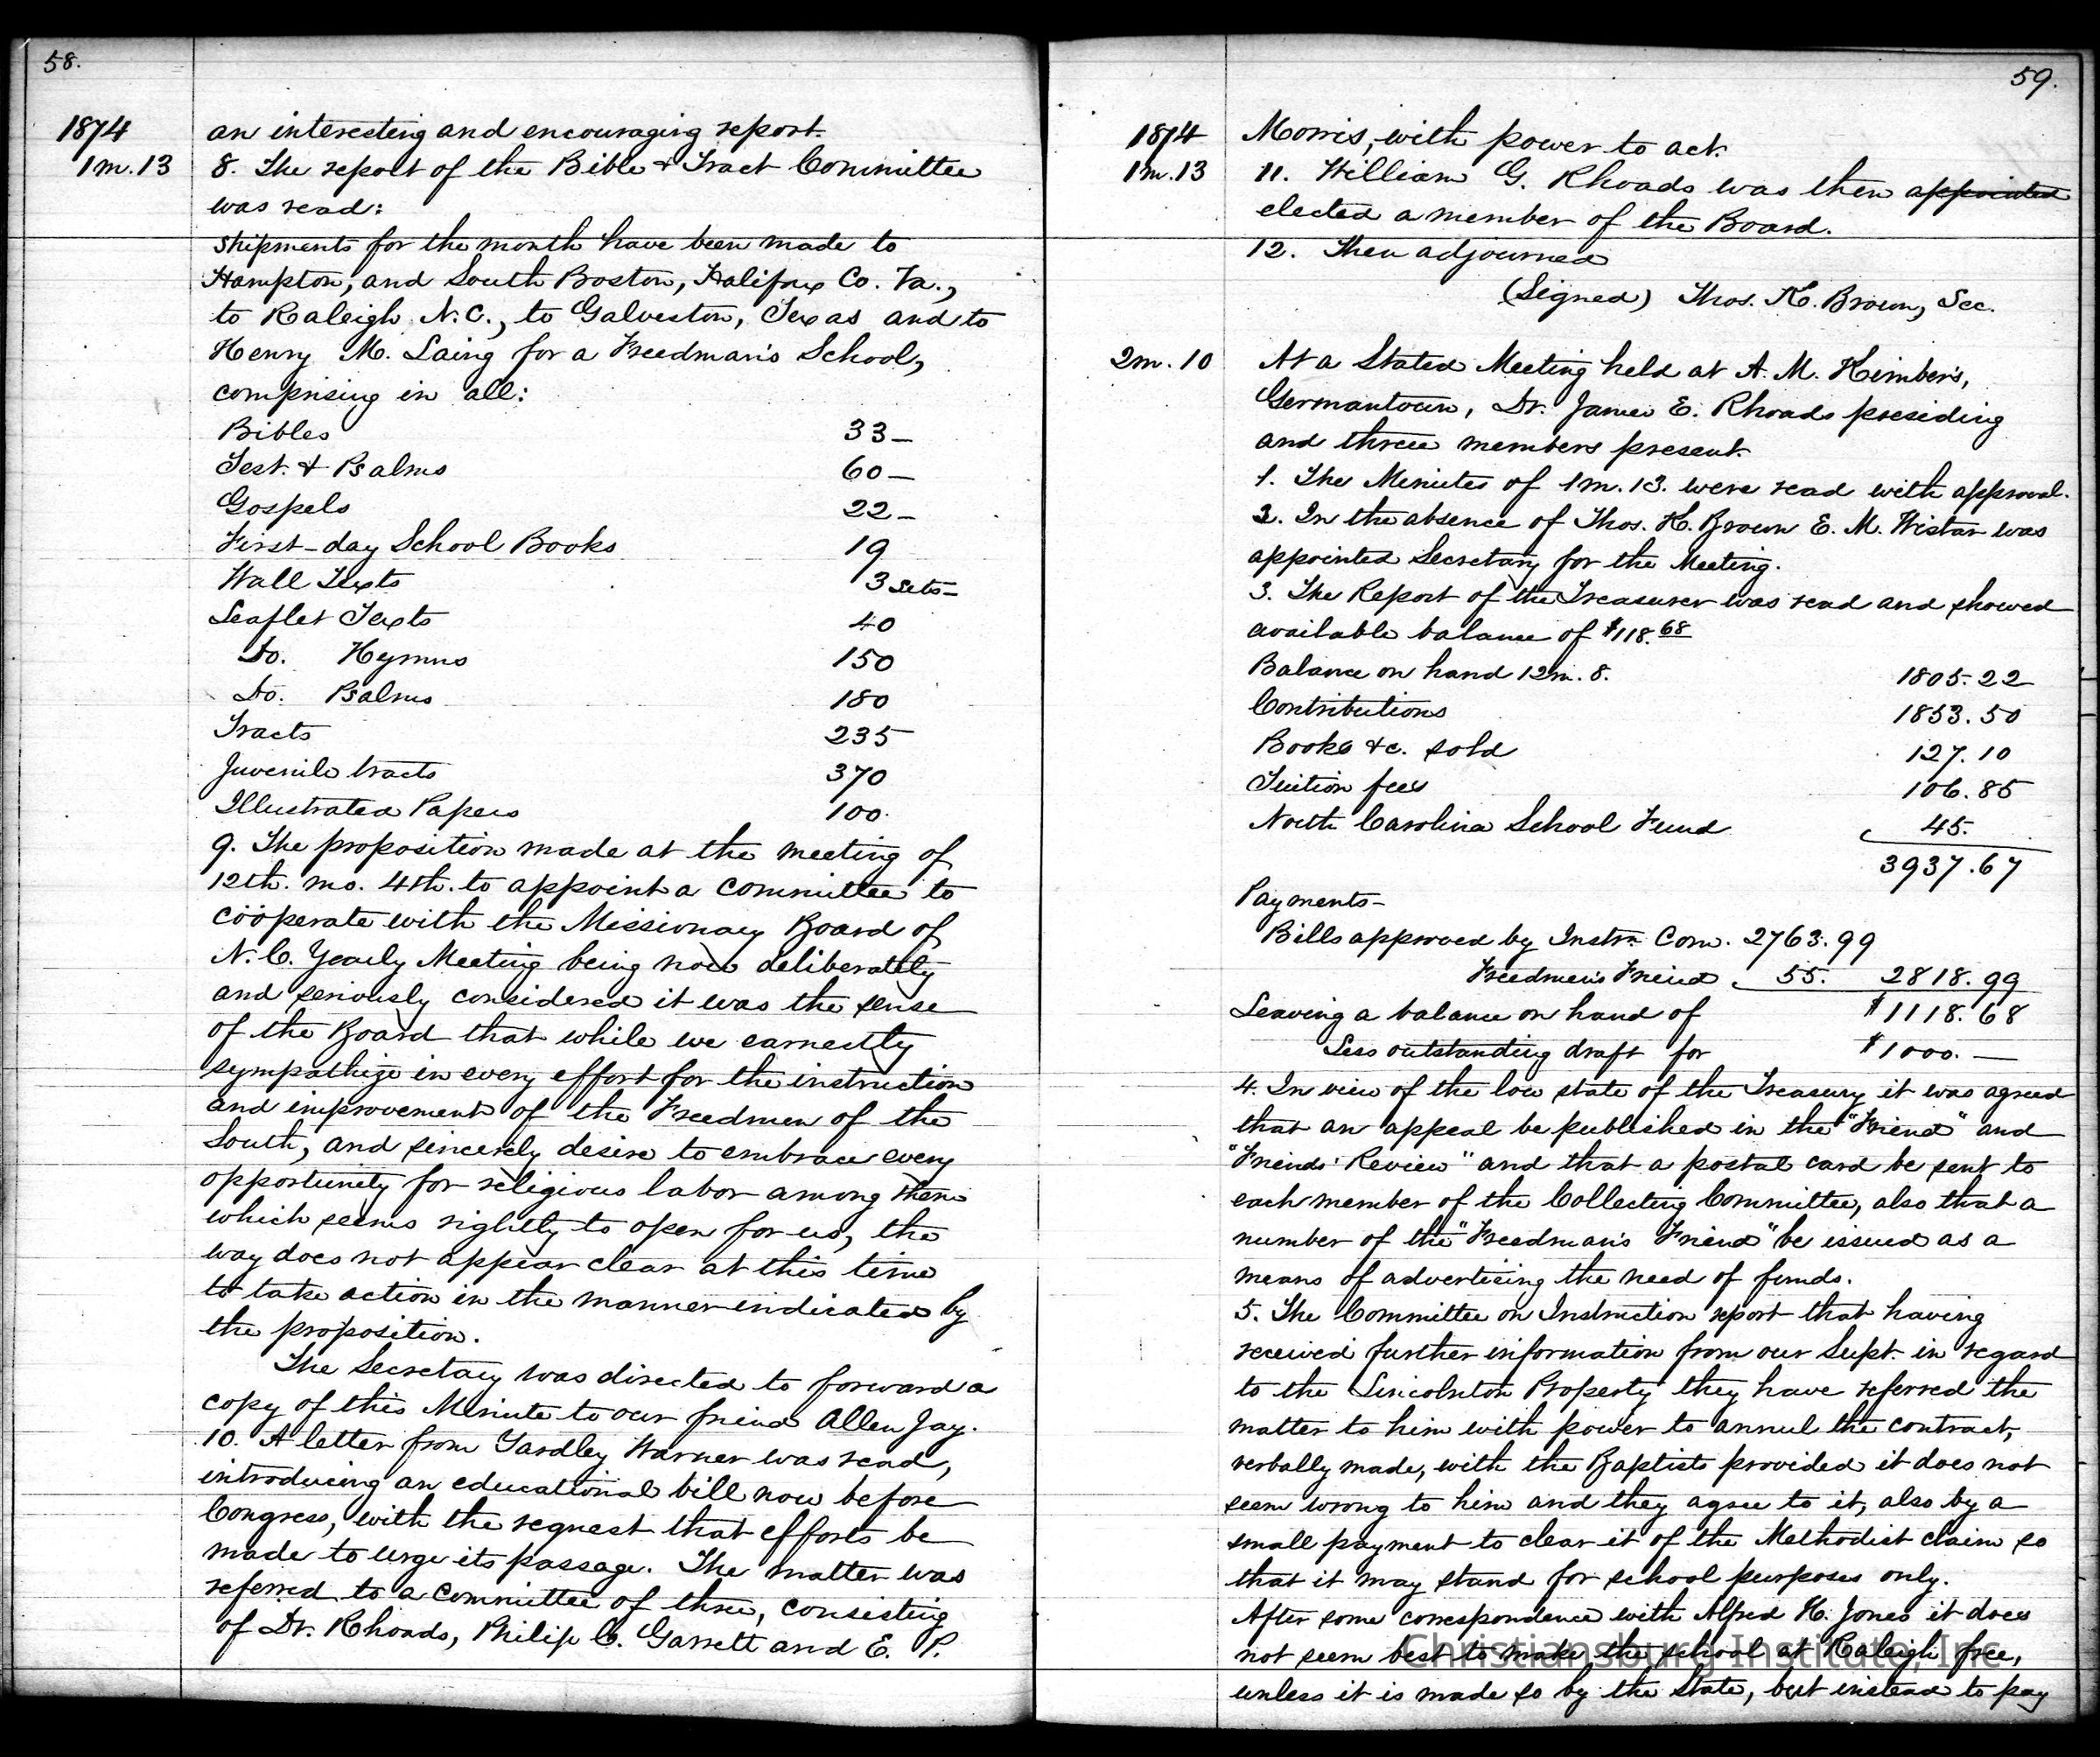 58.
1874
1m.13
an interesting and encouraging report.
8. The report of the Bible & Tract Committee
was read:
Shipments for the month have been made to
Hampton, and South Boston, Halifax Co. Va.,
to Raleigh N.C., to Galveston, Texas and to
Henry M. Laing for a Freedman's School,
comprising in all:
Bibles 33-
Test. & Psalms 60-
Gospels 22-
First-day School Books 19
Wall Texts 3 sets-
Leaflet Texts 40
Do. Hymns 150
Do. Psalms 180
Tracts 235
Juvenile tracts 370
Illustrated Papers 100.
9. The proposition made at the meeting of
12th. mo. 4th. to appoint a committee to
coöperate with the Missionary Board of
N.C. Yearly Meeting being now deliberately
and seriously considered it was the sense
of the Board that while we earnestly
sympathize in every effort for the instruction
and improvement of the Freedmen of the
South, and sincerely desire to embrace every
opportunity for religious labor among them
which seems rightly to open for us, the
way does not appear clear at this time
to take action in the manner indicated by
the proposition.
The Secretary was directed to forward a
copy of this Minute to our friend Allen Jay.
10. A letter from Yardley Warner was read,
introducing an educational bill now before
Congress, with the request that efforts be
made to urge its passage. The matter was
referred to a committee of three, consisting
of Dr. Rhoads, Philip C. Garrett and E. P.
59.
1874
1m.13
Morris, with power to act.
11. William G. Rhoads was then appointed
elected a member of the Board.
12. Then adjourned
(Signed) Thos. K. Brown, Sec.
2m. 10
At a Stated Meeting held at A. M. Kimber's,
Germantown, Dr. James E. Rhoads presiding
and three members present.
1. The Minutes of 1m. 13. were read with approval.
2. In the absence of Thos. K. Brown E. M. Wistar was
appointed Secretary for the Meeting.
3. The Report of the Treasurer was read and showed
available balance of $118.68
Balance on hand 12m. 8. 1805.22
Contributions 1853.50
Books &c. sold 127.10
Tuition fees 106.85
North Carolina School Fund 45.
3937.67
Payments-
Bills approved by Instrn. Com. 2763.99
Freedmen's Friend 55. 2818.99
Leaving a balance on hand of $1118.68
Less outstanding draft for $1000.—
4. In view of the low state of the Treasury it was agreed
that an appeal be published in the "Friend" and
"Friends' Review" and that a postal card be sent to
each member of the Collecting Committee, also that a
number of the "Freedman's Friend" be issued as a
means of advertising the need of funds.
5. The Committee on Instruction report that having
received further information from our Supt. in regard
to the Lincolnton Property they have referred the
matter to him with power to annul the contract,
verbally made, with the Baptists provided it does not
seem wrong to him and they agree to it, also by a
small payment to clear it of the Methodist claim so
that it may stand for school purposes only.
After some correspondence with Alfred H. Jones it does
not seem best to make the school at Raleigh free,
unless it is made so by the State, but instead to pay
Christiansburg Institute, Inc